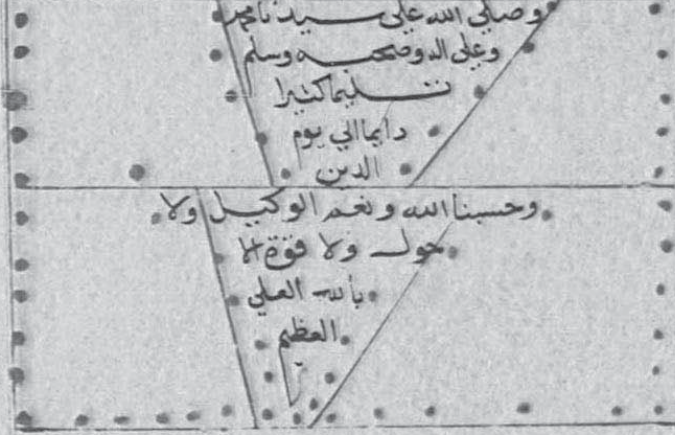 وصلي الله على سيدنا محمد
وعلى اله وصحبه وسلم
تسليما كثيرا
دايما الي يوم
الدين
وحسبنا الله ونعم الوكيل ولا
حول ولا قوة الا
بالله العلي
العظيم